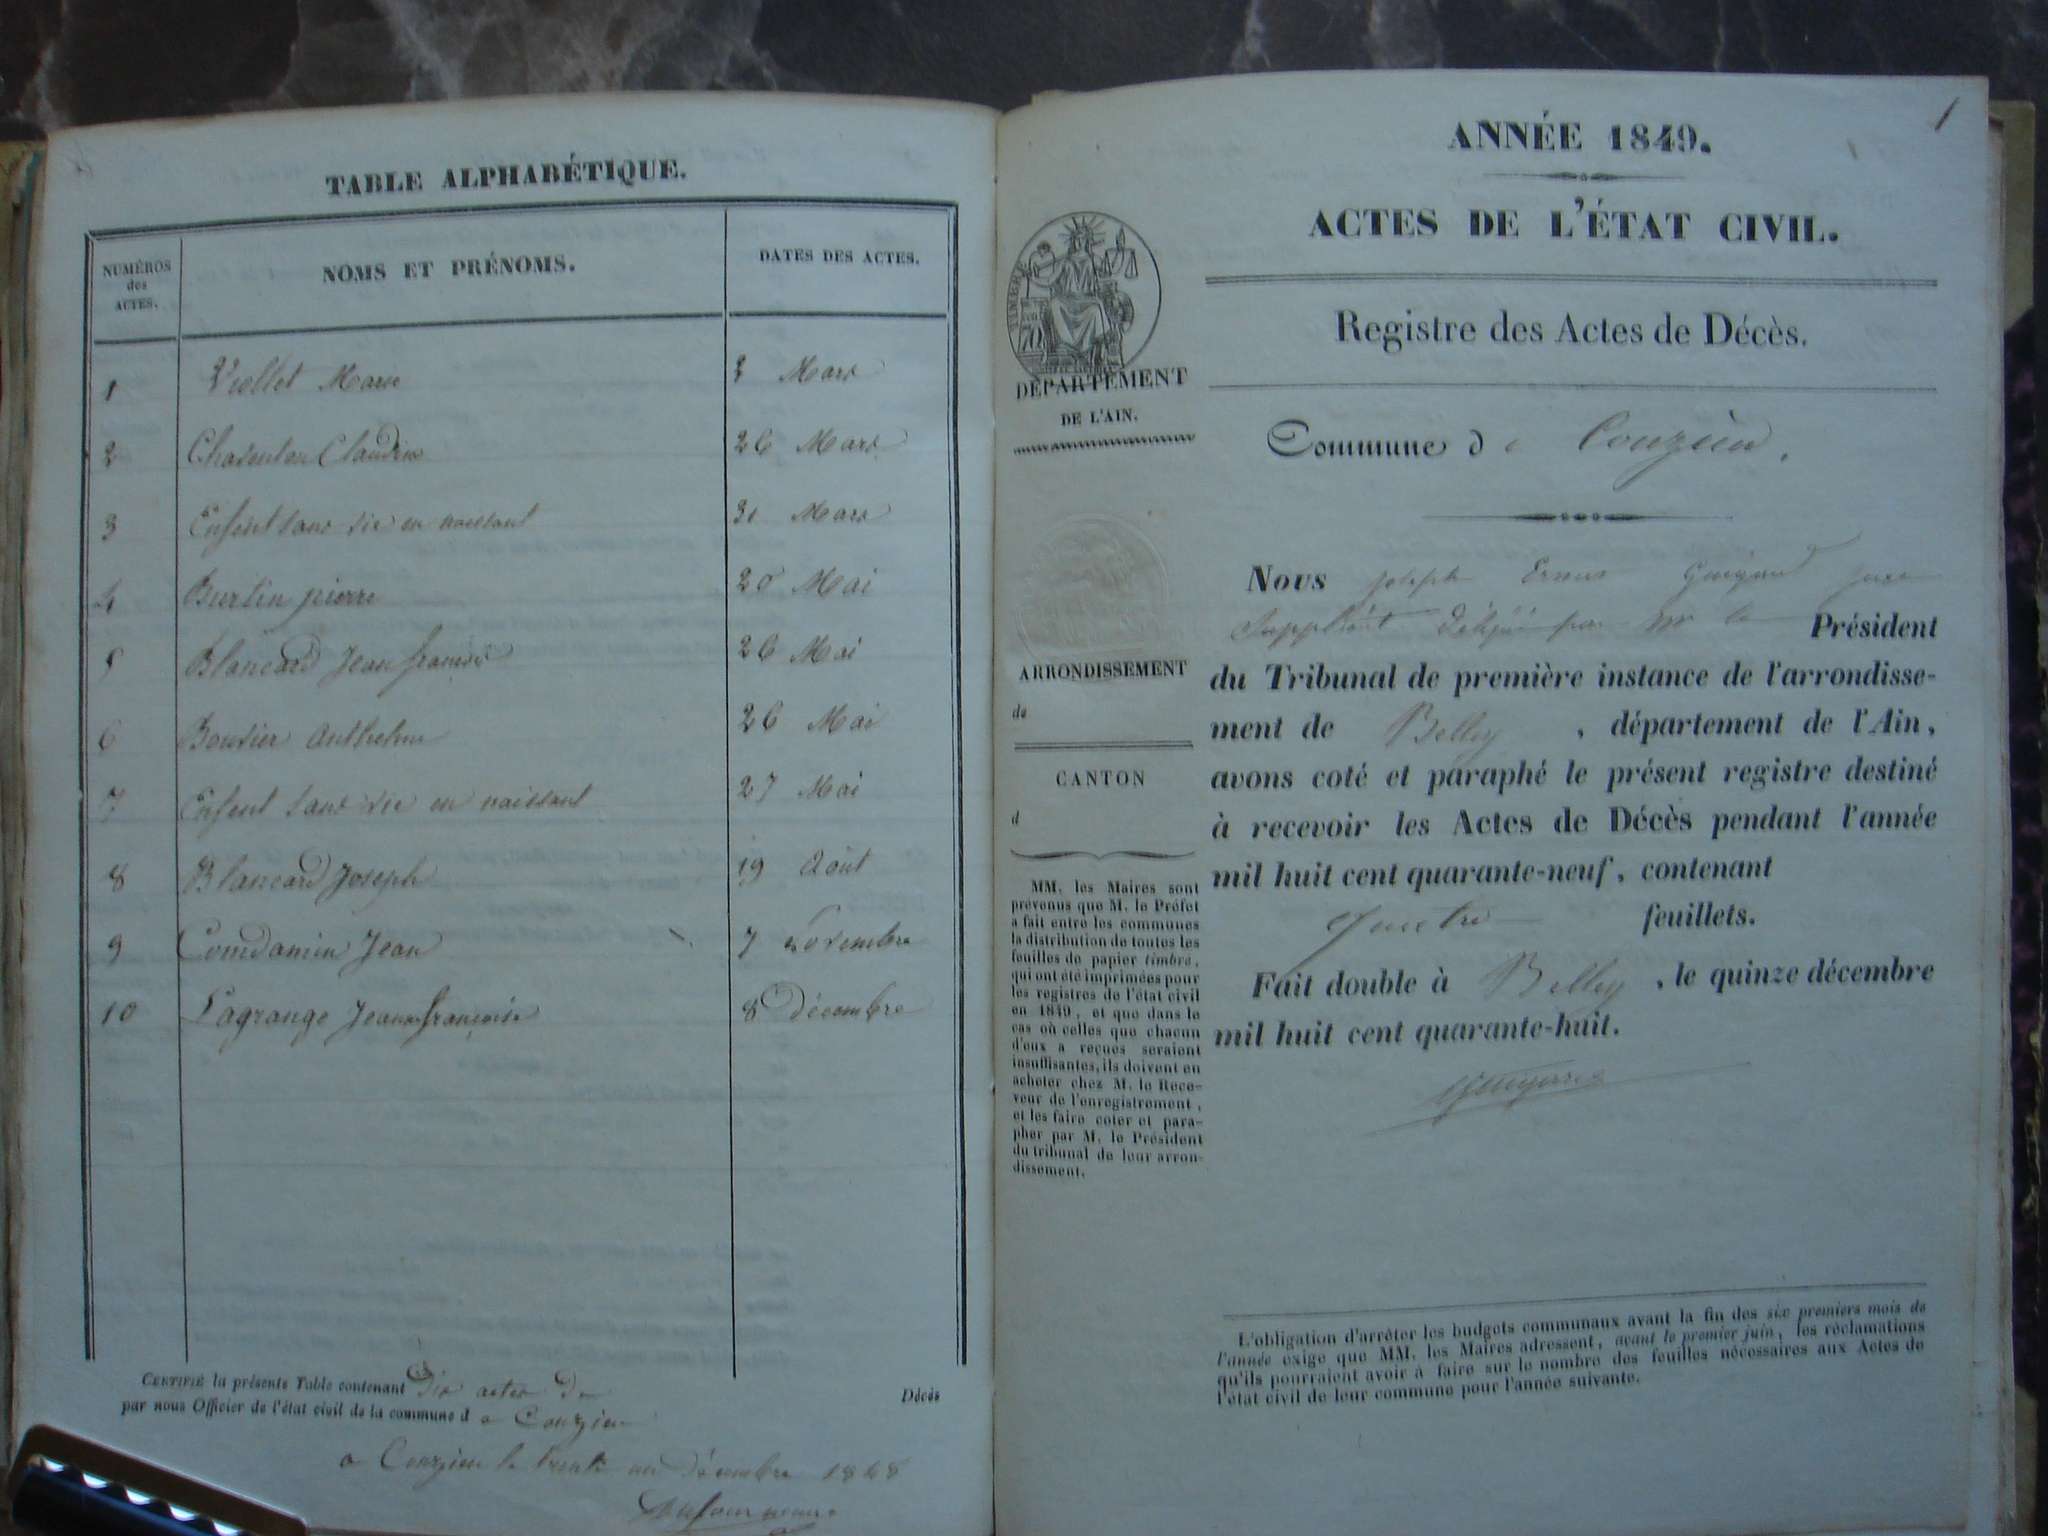 TABLE ALPHABÉTIQUE.
NUMÉROS
des
ACTES.
NOMS ET PRÉNOMS.
DATES DES ACTES.
1 Viollet Marie 3 Mars
2 Claudine 26 Mars
3 Enfent sans vie en naissant 31 Mars
4 Burtin pierre 20 Mai
5 Blancard Jean françois 26 Mai
6 Bouvier Anthelme 26 Mai
7 Enfent sans vie en naissant 27 Mai
8 Blancard Joseph 19 Août
9 Comdamin Jean 7 Novembre
10 Lagrange Jeanne françoise 8 décembre
CERTIFIÉ la présente Table contenant dix actes de Décès
par nous Officier de l'état civil de la commune d e Conzieu
a Conzieu le trente un décembre 1848
1
ANNÉE 1849.
ACTES DE L'ÉTAT CIVIL.
Registre des Actes de Décès.
TIMBRE
DÉPARTEMENT
DE L'AIN.
Commune d e Conzieu.
ARRONDISSEMENT
de
CANTON
d
MM. les Maires sont
prévenus que M. le Préfet
a fait entre les communes
la distribution de toutes les
feuilles de papier timbré,
qui ont été imprimées pour
les registres de l'état civil
en 1849, et que dans le
cas où celles que chacun
d'eux a reçues seraient
insuffisantes, ils doivent en
acheter chez M. le Rece-
veur de l'enregistrement,
et les faire coter et para-
pher par M. le Président
du tribunal de leur arron-
dissement.
Nous Joseph juge
Suppléant délégué par Mr le Président
du Tribunal de première instance de l'arrondisse-
ment de Belley, département de l'Ain,
avons coté et paraphé le présent registre destiné
à recevoir les Actes de Décès pendant l'année
mil huit cent quarante-neuf, contenant
quatre feuillets.
Fait double à Belley, le quinze décembre
mil huit cent quarante-huit.
L'obligation d'arrêter les budgets communaux avant la fin des six premiers mois de
l'année exige que MM. les Maires adressent, avant le premier juin, les réclamations
qu'ils pourraient avoir à faire sur le nombre des feuilles nécessaires aux Actes de
l'état civil de leur commune pour l'année suivante.